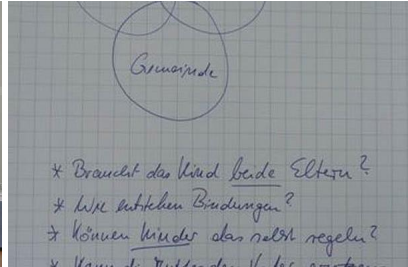 Gemeinde
* Braucht das Kind beide Eltern?
* Wie entstehen Bindungen?
* Können Kinder das selbst regeln?